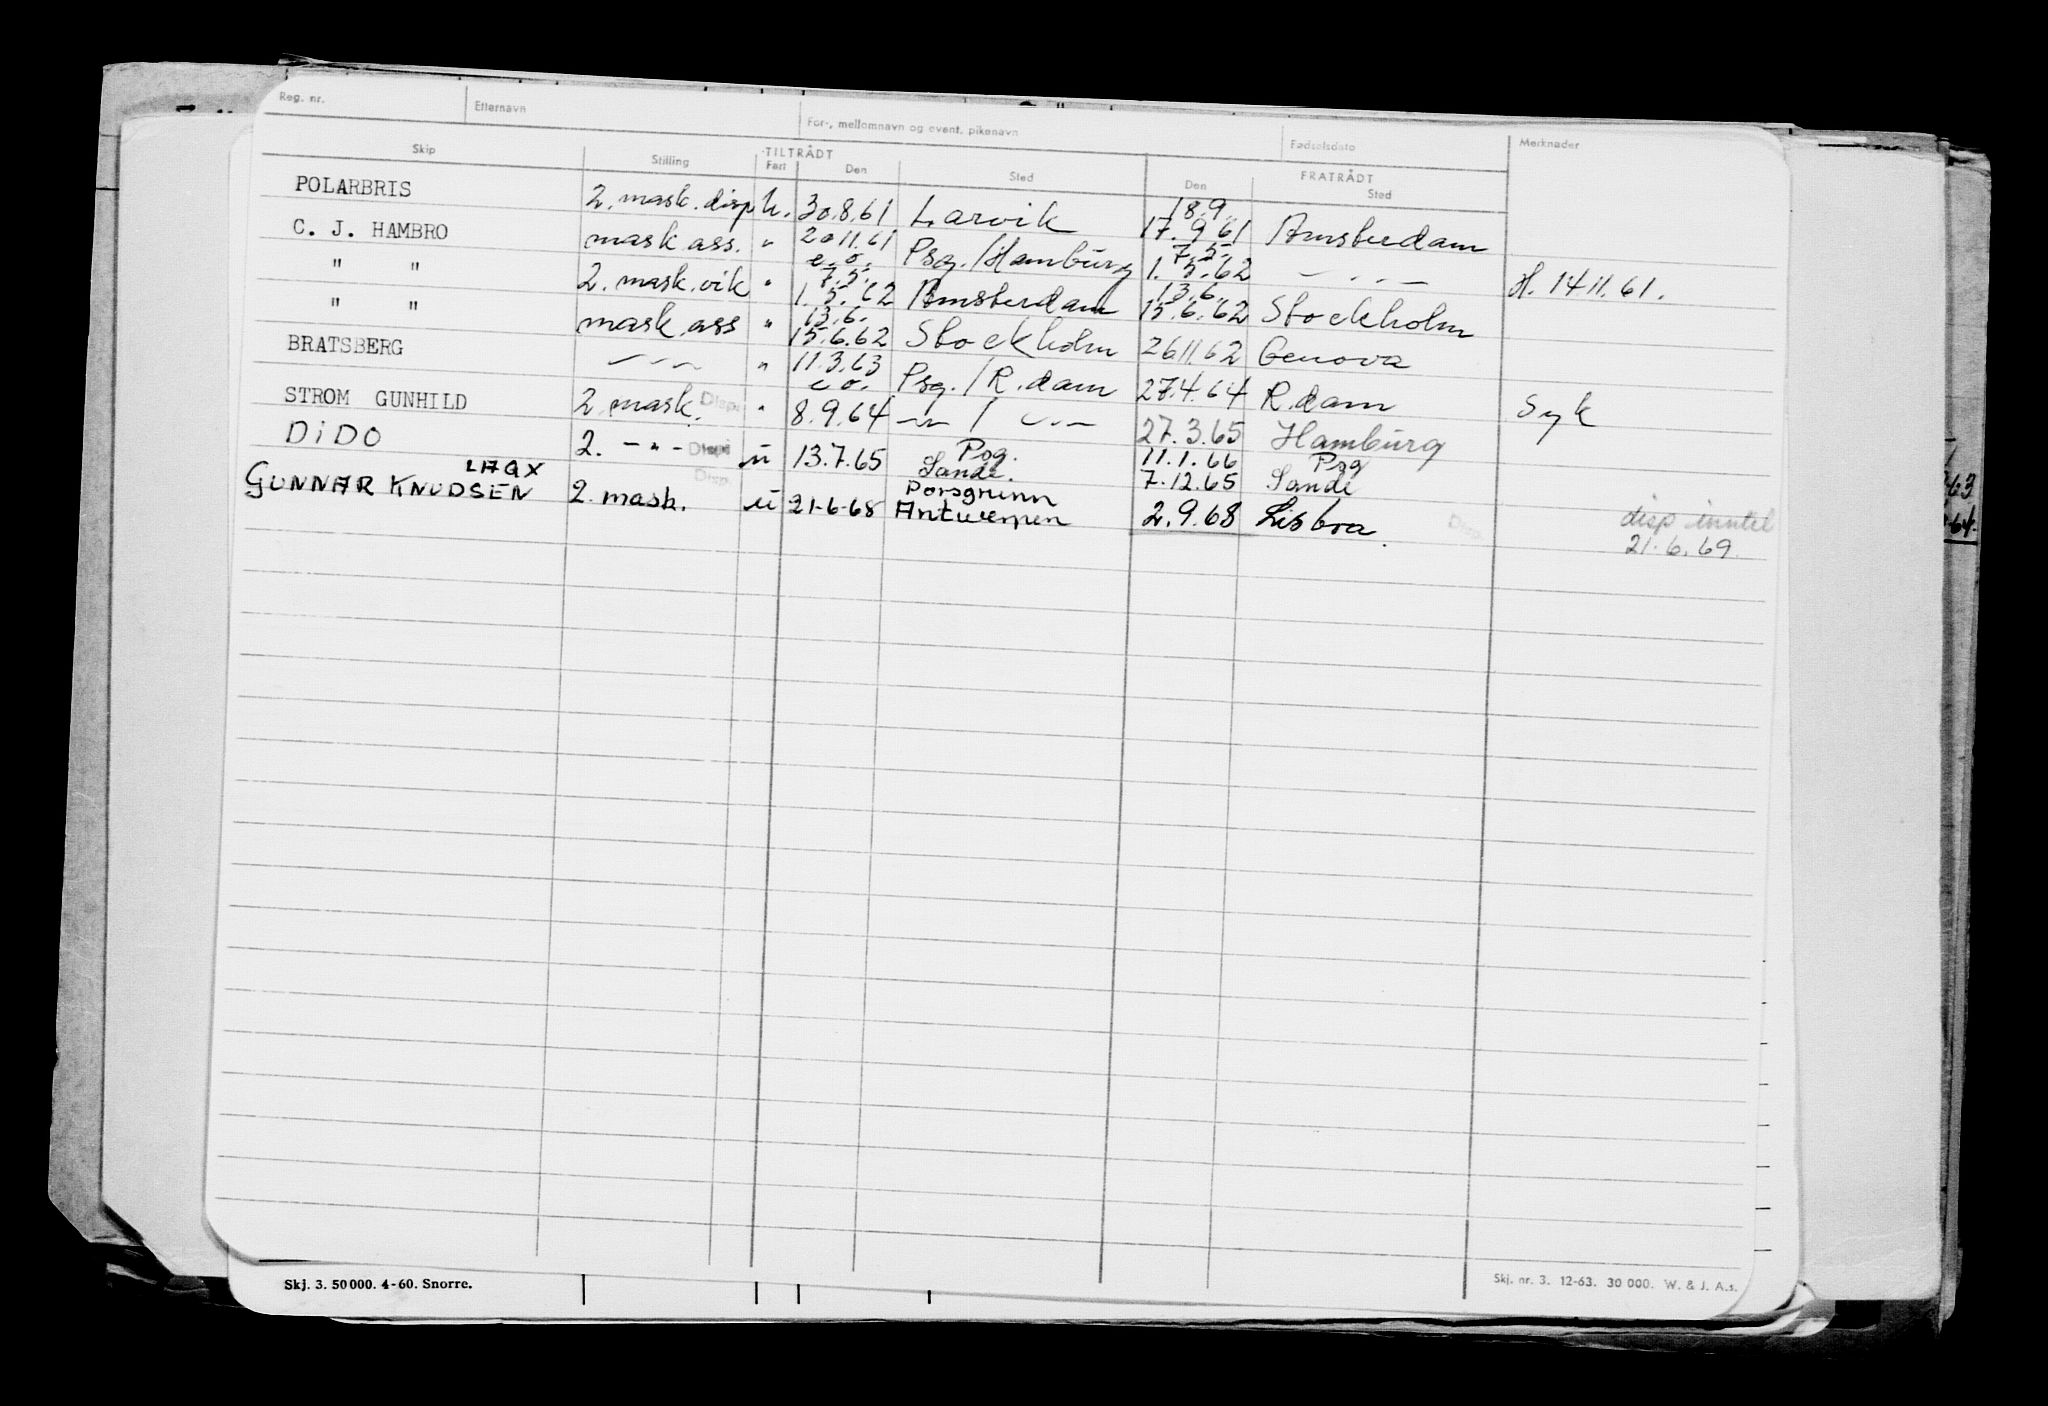 Reg. nr. Etternavn For-, mellomnavn og event. pikenavn Fødselsdato Merknader
Skip Stilling TILTRÅDT Fart Den Sted FRATRÅDT Den Sted
18.9.
POLARBRIS 2. mask. disp u. 30.8.61 Larvik 17.9.61 Amsterdam
20.11.61 7.5.
C. J. HAMBRO mask. ass. " e.o. Psg./Hamburg 1.5.62 — " — H. 14.11.61.
7.5. 13.6.
" " 2. mask. vik " 1.5.62 Amsterdam 15.6.62 Stockholm
13.6.
" " mask. ass " 15.6.62 Stockholm 26.11.62 Genova
11.3.63
BRATSBERG — " — " e.o. Psg./R.dam 27.4.64 R.dam Syk
STROM GUNHILD 2. mask. Disp. " 8.9.64 — " — / — " — 27.3.65 Hamburg
Psg. 11.1.66 Psg
DiDO 2. — " — Disp. u 13.7.65 Sande. 7.12.65 Sande
LAQX Disp. Porsgrunn
GUNNAR KNUDSEN 2. mask. u 21-6-68 Antwerpen 2.9.68 Lisboa. Disp. disp inntil
21.6.69.
63
64.
Skj. 3. 50 000. 4-60. Snorre.
Skj. nr. 3. 12-63. 30 000. W. & J. A.s.